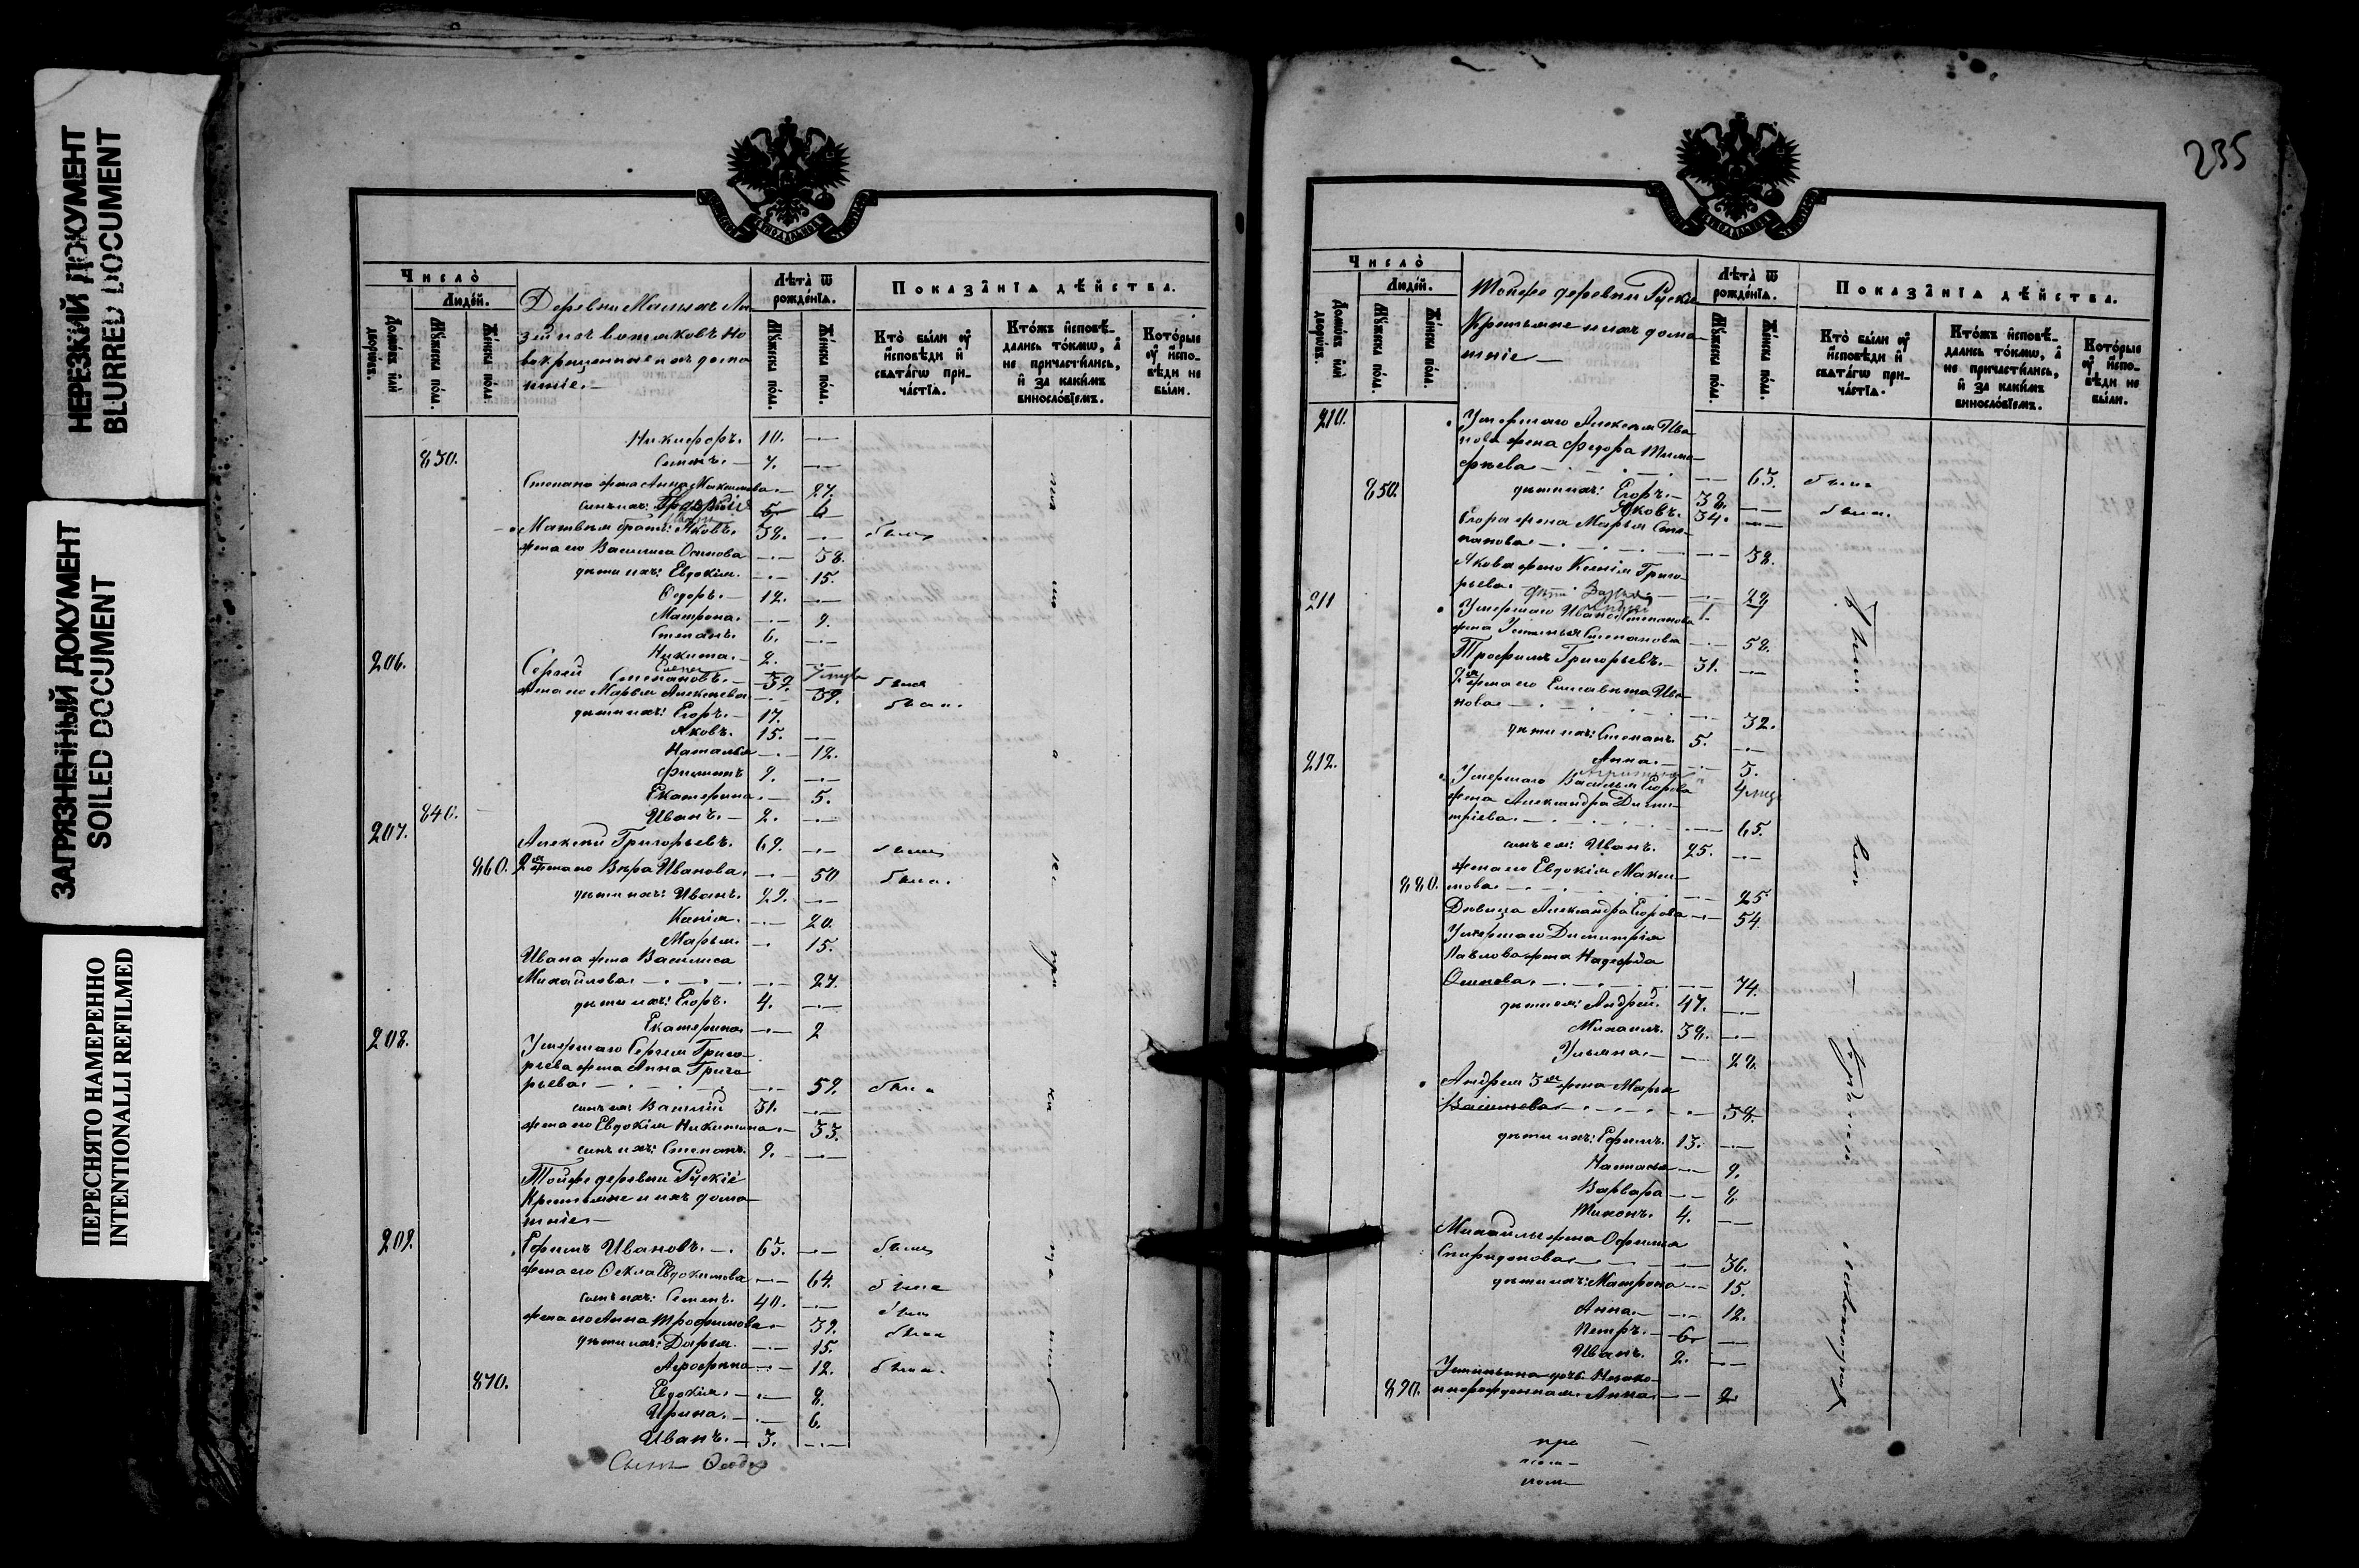 НЕРЕЗКИЙ ДОКУМЕНТ
BLURRED DOCUMENT
ЗАГРЯЗНЕННЫЙ ДОКУМЕНТ
SOILED DOCUMENT
ПЕРЕСНЯТО НАМЕРЕННО
INTENTIONALLI REFILMED
Число̀
Люде́й.
Домо́въ и҆лѝ дворо́въ.
Мꙋ́жеска по́ла.
Же́нска по́ла.
Деревни Малыхъ
вотяковъ Но
вокрещенные и ихъ дома
шніе. —
Лѣта̀ ѿ рожде́нїѧ.
Мꙋ́жеска по́ла.
Же́нска по́ла.
Показа̑нїѧ дѣ́йства.
Кто̀ бы́ли ᲂу҆ и҆сповѣди и҆ свѧта́гѡ при-
ча́стїѧ.
Кто́жъ и҆сповѣ-
дались то́кмѡ, а҆
не причасти́лись,
и҆ за каки́мъ
винносло́вїемъ.
Кото́рые
ᲂу҆ и҆спо-
вѣди не
бы́ли.
Никифоръ. 10. —
830. Семенъ. — 7. —
Степана жена Анна Максимова. — 27.
сынъ ихъ: 5. 6
Матвея братъ: Яковъ. 38. — былъ
жена его Василиса Осипова — 38.
дѣти ихъ: Евдокія. — 15.
Ѳедоръ. — 12. —
Матрона. — 9.
Степанъ. 6. —
Никита. — 2. —
206. Сергѣй Степановъ. — 39. былъ
жена его Марья Алексѣева — 39. была.
дѣти ихъ: Егоръ. — 17.
Яковъ. 15. —
Наталья — 12.
Филиппъ 9. —
Екатерина. — 5.
840. Иванъ. — 2. —
207. Алексѣй Григорьевъ. 69. — былъ
860. 2я жена его Вѣра Иванова. — 50 была.
дѣти ихъ: Иванъ. 29. —
Ксенія. — 20.
Марья. — 15.
Ивана жена Василиса
Михайлова. — 27.
дѣти ихъ: Егоръ. 4. —
Екатерина — 2
208. Умершаго Сергѣя Григо-
рьева жена Анна Григо
рьева. — 59. была
сынъ ея Василій 31. —
жена его Евдокія Никитина. — 33.
сынъ ихъ: Степанъ. 9. —
Тойже деревни Рускіе
Крестьяне и ихъ дома-
шніе —
209. Ефимъ Ивановъ. — 65. — былъ
жена его Ѳекла Евдокимова — 64. была
сынъ ихъ: Семенъ. 40. — былъ
жена его Анна Трофимова. — 39. была
дѣти ихъ: Дарья. — 15.
Агрофина — 12. была.
870. Евдокія. — 8.
Ирина. — 6.
Иванъ. — 3. —
235
Число̀
Люде́й.
Домо́въ и҆лѝ дворо́въ.
Мꙋ́жеска по́ла.
Же́нска по́ла.
Тойже деревни Рускіе
Крестьяне и ихъ дома-
шніе —
Лѣта̀ ѿ рожде́нїѧ.
Мꙋ́жеска по́ла.
Же́нска по́ла.
Показа̑нїѧ дѣ́йства.
Кто̀ бы́ли ᲂу҆
и҆сповѣди и҆
свѧта́гѡ при-
ча́стїѧ.
Кто́жъ и҆сповѣ-
дались то́кмѡ, а҆
не причасти́лись,
и҆ за каки́мъ
винносло́вїемъ.
Кото́рые
ᲂу҆ и҆спо-
вѣди не
бы́ли.
210. Умершаго Алексѣя Ива
нова жена Федора Тимо
фѣева — 63. была
850. дѣти ихъ: Егоръ. — 38. — былъ.
Яковъ. 34. —
Егора жена Марья Сте-
панова — 38.
Якова жена Ксенія Григо-
рьева. — 28
211 Умершаго Ивана Степанова
жена Устинья Степанова — 58.
Трофимъ Григорьевъ. — 31. —
2я жена его Елисавета Ива-
нова — 32.
дѣти ихъ: Степанъ. 5. —
Анна. — 5.
212. Умершаго Василья Егорова
жена Александра Дими-
тріева. — 65.
сынъ ея: Иванъ. 25. —
880. жена его Евдокія Макси-
мова — 25
Дѣвица Александра Егорова — 54.
Умершаго Димитрія
Павлова жена Надежда
Осипова. — 74.
дѣти ея: Андрей. 47. —
Михаилъ. 38. —
Ульяна. — 28.
Андрея 3я жена Марья
Васильева — 38.
дѣти ихъ: Ефимъ. 13. —
Настасья — 9.
Варвара — 8
Тихонъ. 4. —
Михаилы жена Офимья
Спиридонова — 36.
дѣти ихъ: Матрона — 15.
Анна. — 12.
Петръ. — 6. —
Иванъ. 2. —
Устиньина дочь Незако-
890. ннорожденная Анна — 2